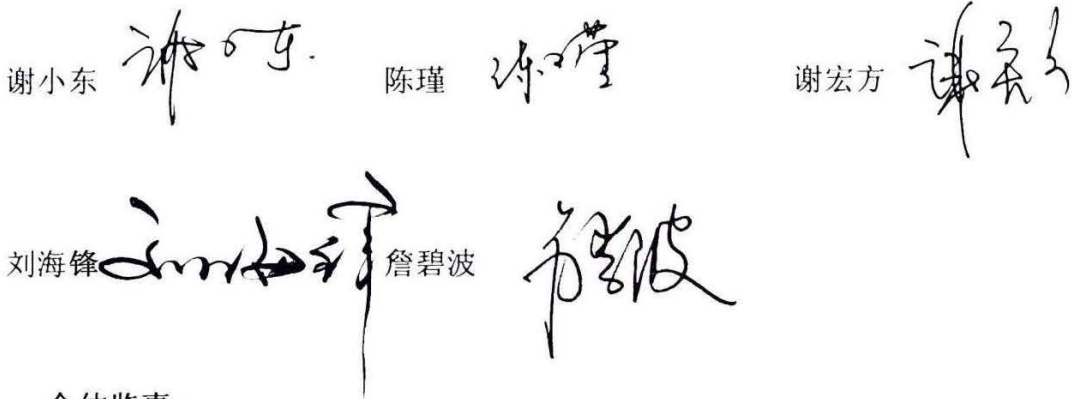 谢小东 谢小东 陈瑾 陈瑾 谢宏方 谢宏方
刘海锋 刘海锋 詹碧波 詹碧波
全体监事